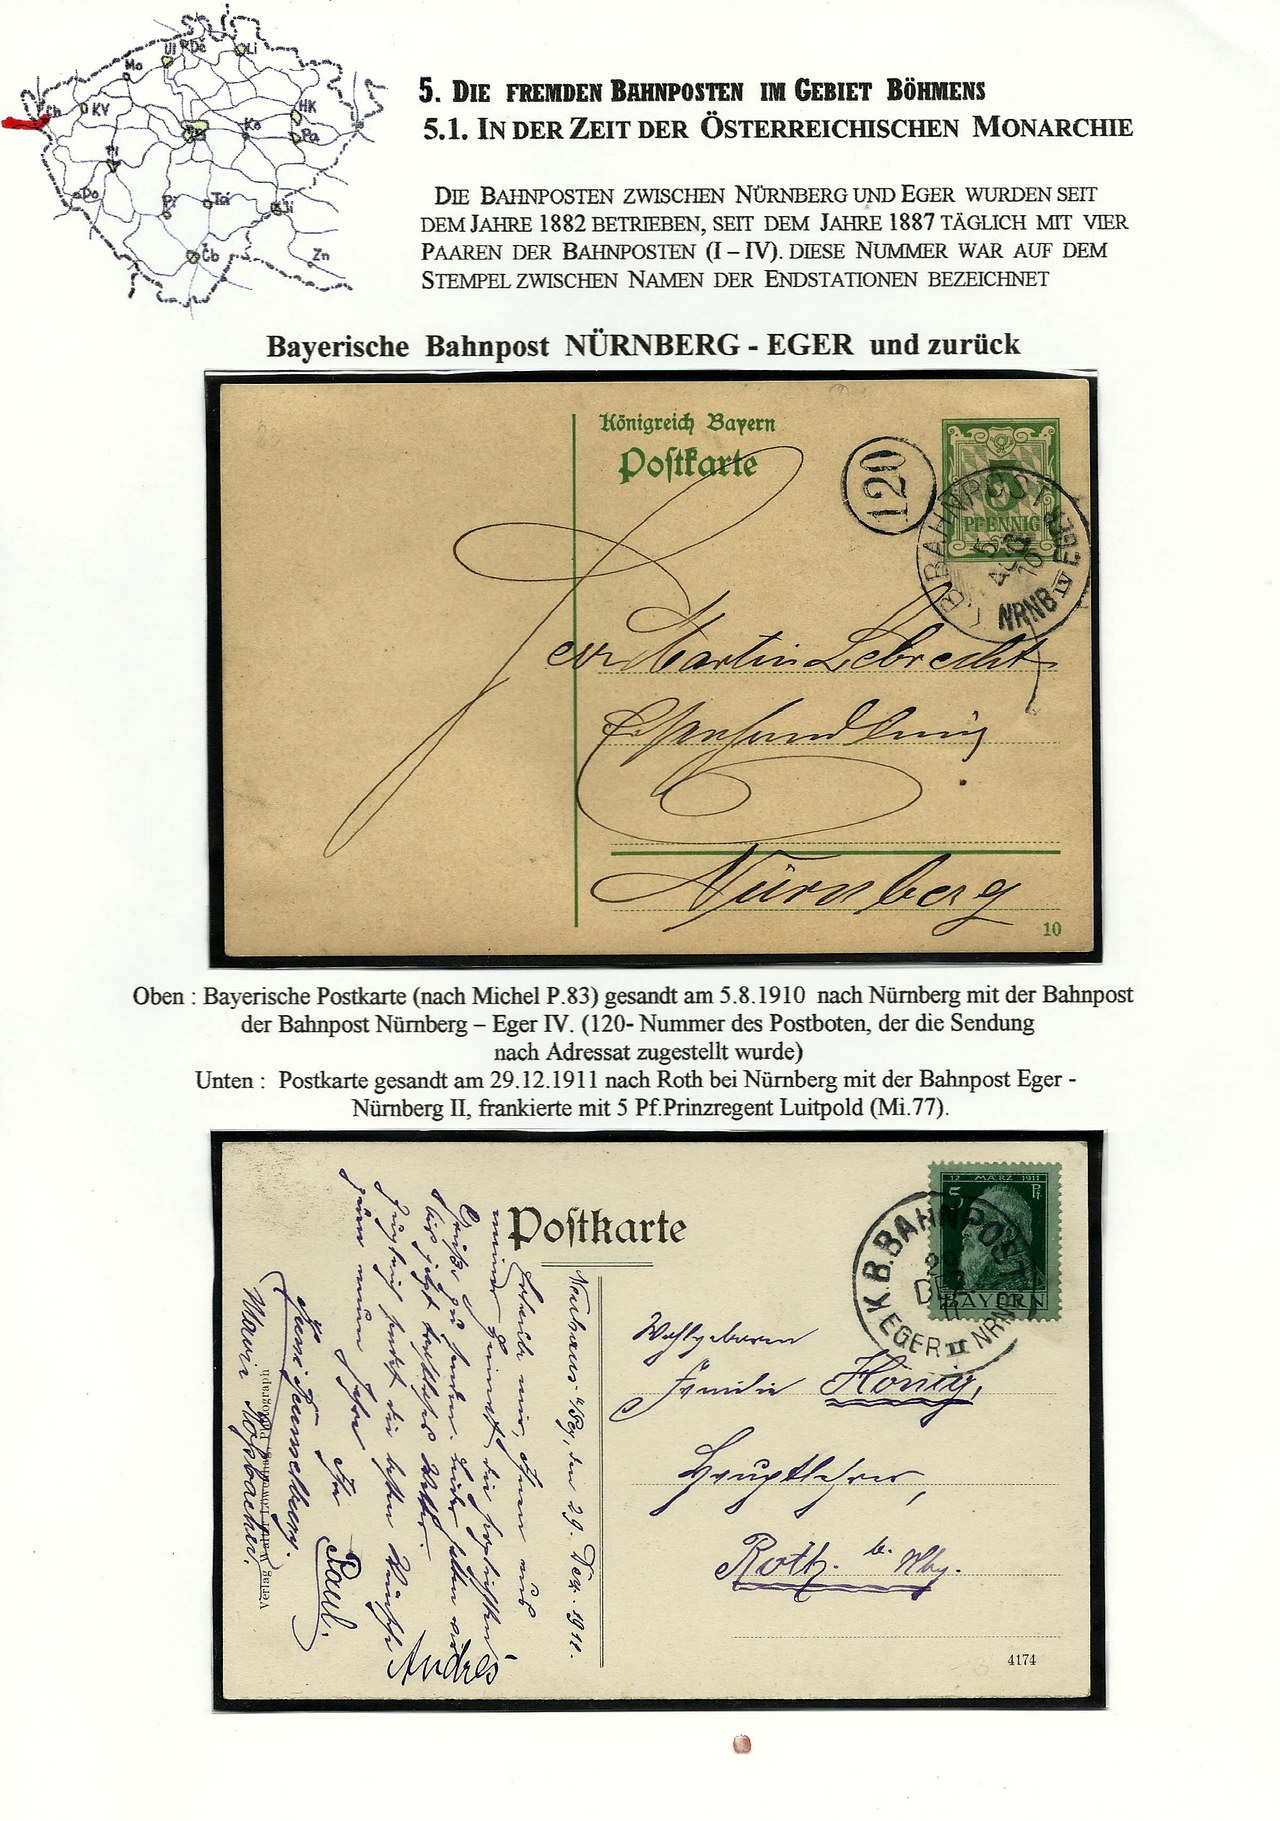 Ul
Dě
Li
Mo
Ch
KV
HK
Ko
Pa
Pl
Do
Pí
Tá
Ji
Čb
Zn
5. DIE FREMDEN BAHNPOSTEN IM GEBIET BÖHMENS
5.1. IN DER ZEIT DER ÖSTERREICHISCHEN MONARCHIE
DIE BAHNPOSTEN ZWISCHEN NÜRNBERG UND EGER WURDEN SEIT
DEM JAHRE 1882 BETRIEBEN, SEIT DEM JAHRE 1887 TÄGLICH MIT VIER
PAAREN DER BAHNPOSTEN (I – IV). DIESE NUMMER WAR AUF DEM
STEMPEL ZWISCHEN NAMEN DER ENDSTATIONEN BEZEICHNET
Bayerische Bahnpost NÜRNBERG - EGER und zurück
Königreich Bayern
Postkarte
120
5
PFENNIG
BAHNPOST
5
AUG
10
NRNB IV EGER
Martin Lebrecht
Nürnberg
10
Oben : Bayerische Postkarte (nach Michel P.83) gesandt am 5.8.1910 nach Nürnberg mit der Bahnpost
der Bahnpost Nürnberg – Eger IV. (120- Nummer des Postboten, der die Sendung
nach Adressat zugestellt wurde)
Unten : Postkarte gesandt am 29.12.1911 nach Roth bei Nürnberg mit der Bahnpost Eger -
Nürnberg II, frankierte mit 5 Pf.Prinzregent Luitpold (Mi.77).
Postkarte
12 MÄRZ 1911
5 Pf.
BAYERN
K.B.BAHNPOST
29
DEZ
11
EGER II NRNB
Wohlgeboren
Familie König,
Hauptlehrer,
Roth b. Nbg.
4174
Neuhaus a/Peg, den 29. Dez. 1911.
Erlaube mir, Ihnen aus
meiner Heimat die herzlichsten
Grüße zu senden. Leider hatten wir
bis jetzt
die besten Wünsche
zum neuen Jahre Ihr Paul.
Andrés
Maria
Verlag